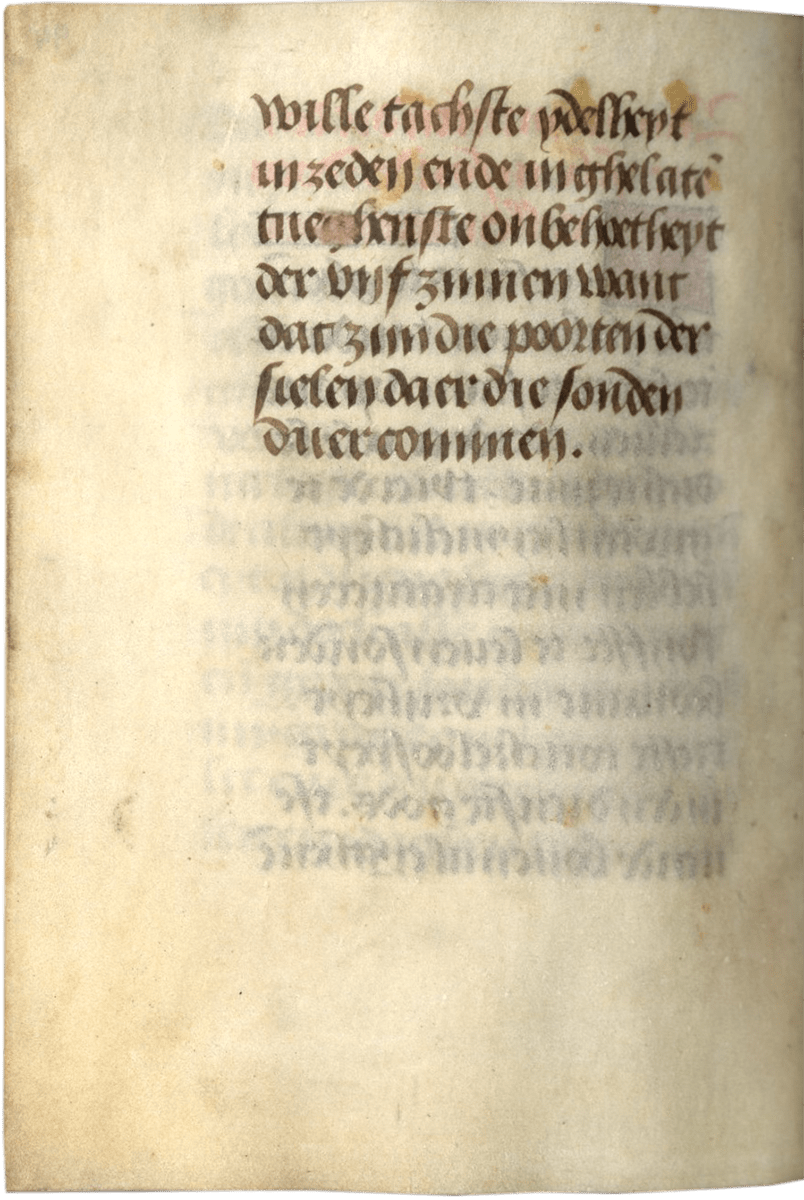 wille tachste ydelheyt
in zeden ende in ghelatē
tneghenste onbehoetheyt
der vijf zinnen want
dat zijn die poorten der
sielen daer die sonden
duer commen.